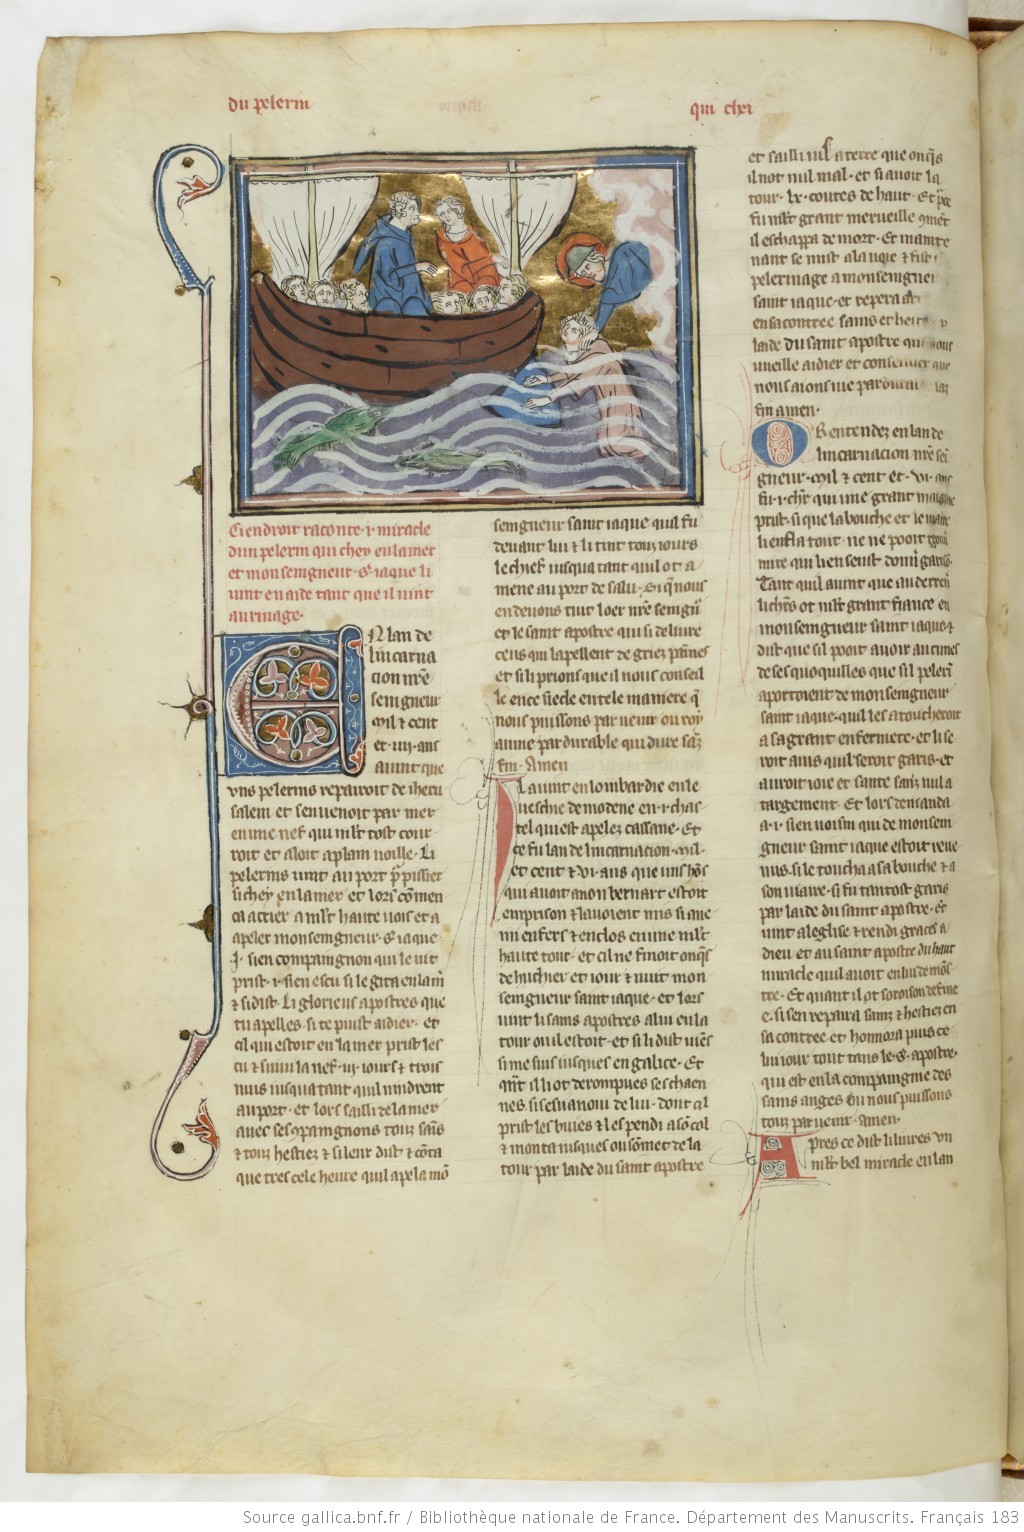 du pelerin
qui chei
Ci endroit raconte .i. miracle
dun pelerin qui chey en la mer
et mon seingneur .st. iaque li
uint en aide tant que il uint
au riuage.
EN lan de
lincarna
cion nr̄e
seingneur
mil ⁊ cent
et .iiii. ans
auint que
vns pelerins repairoit de iheru
salem et sen uenoit par mer
en une nef qui ml̄t tost cour
roit et aloit a plain uoille. Li
pelerins uint au port pr̄ pissier
si chey en la mer et lors cōmen
ca a crier a ml̄t haute uois et a
apeler mon seingneur .st. iaque.
.J. sien compaingnon qui le uit
prist .i. sien escu si le gita en la m̄
et si dist. Li glorieus apostres que
tu apelles. si te puist aidier. et
cil qui estoit en la mer prist les
cu ⁊ siuui la nef .iii. iours ⁊ trois
nuis iusqua tant quil uindrent
au port. et lors sailli de la mer
auec ses ɔpaingnons touz sains
⁊ touz hestiez ⁊ si leur dist ⁊ cōta
que tres cele heure quil apela mō
seingneur saint iaque quil fu
deuant lui ⁊ li tint touz iours
le chief iusqua tant quil ot a
mene au port de salu. Si q̄ nous
en deuons tuit loer nr̄e seingn̄r
et le saint apostre qui si deliure
ceus qui lapellent de griez paines
et si li prions que il nous conseil
le en ce siecle en tele maniere q̄
nous puissons paruenir ou roy
aume pardurable qui dure sanz
fin. Amen
IL auint en lombardie en le
ueschie de modene en .i. chas
tel qui est apelez cassane. Et
ce fu lan de lincarnacion .mil.
et cent et .vi. ans que uns hōs
qui auoit a non bernart estoit
en prison ⁊ lauoient mis si ane
mi en fers ⁊ enclos en une ml̄t
haute tour. et cil ne finoit onq̄s
de huchier et iour ⁊ nuit mon
seingneur saint iaque. et lors
uint li sains apostres a lui en la
tour ou il estoit. et si li dist uien
si me suis iusques en galice. Et
qn̄t il li ot derompues ses chaen
nes. si sesuanoui de lui. dont cil
prist les buies ⁊ les pendi a sō col
⁊ monta iusques ou sōmet de la
tour par laide du saint apostre
et sailli ius a terre que onq̄s
il not nul mal. et si auoit la
tour .lx. coutes de haut. Et pr̄ ce
fu ml̄t grant merueille ɔment
il eschappa de mort. Et mainte
nant se mist a la uoie ⁊ fist
pelerinage a mon seingneur
saint iaque. et repera
en sa contree sains et
laide du saint apostre qui nous
uueille aidier et conseillier que
nous aions uie pardurable
fin amen.
OR entendez en lan de
lincarnacion nr̄e sei
gneur .mil ⁊ cent et .vi. ans
fu .i. chr̄ qui une grant maladie
prist. si que la bouche et le
li enfla tout ne ne pooit trouuer
mire qui li en seust donner garison.
Tant quil auint que au derreen
li chr̄s ot ml̄t grant fiance en
mon seingneur saint iaque ⁊
dist que sil pooit auoir aucunes
de ses quoquilles que si pelerin
aportoient de mon seingneur
saint iaque. quil les atoucheroit
a sa grant enfermete. et li se
roit auis quil seroit garis. et
auroit ioie et sante sanz nul a
targement. Et lors demanda
a .i. sien uoisin qui de mon sein
gneur saint iaque estoit uene
nus. si le toucha a sa bouche ⁊ a
son uiaire. si fu tantost garis
par laide du saint apostre. Et
uint a leglise ⁊ rendi graces a
dieu et au saint apostre du haut
miracle quil auoit en lui demōs
tre. Et quant il ot soroison define
e. si sen repaira sainz ⁊ hestiez en
sa contree. et honnora puis ce
lui iour tout tans le .s. apostre.
qui est en la compaingnie des
sains anges ou nous puissons
touz paruenir. amen.
Apres ce dist li liures vn
ml̄t bel miracle en lan
Source gallica.bnf.fr / Bibliothèque nationale de France. Département des Manuscrits. Français 183